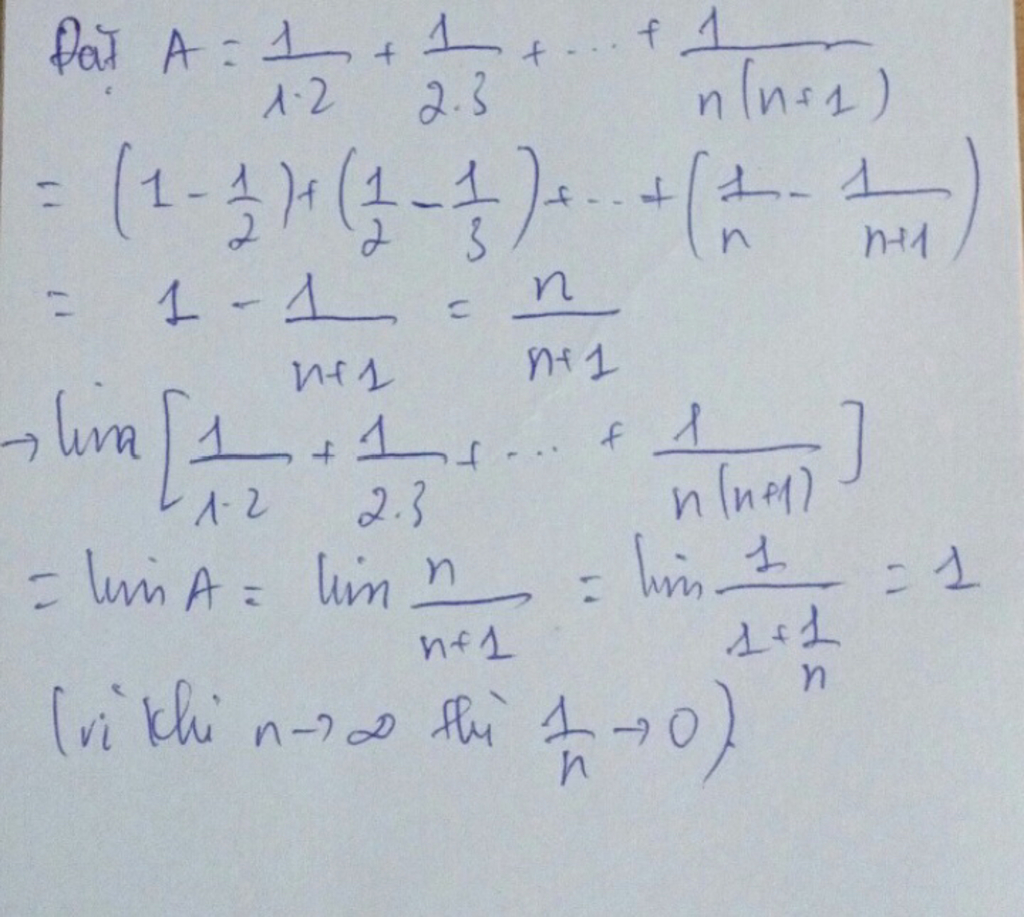 Đặt A = 1/1.2 + 1/2.3 + ... + 1/n(n+1)
= (1 - 1/2) + (1/2 - 1/3) + ... + (1/n - 1/n+1)
= 1 - 1/n+1 = n/n+1
→ lim [1/1.2 + 1/2.3 + ... + 1/n(n+1)]
= lim A = lim n/n+1 = lim 1/1+1/n = 1
(vì khi n → ∞ thì 1/n → 0)